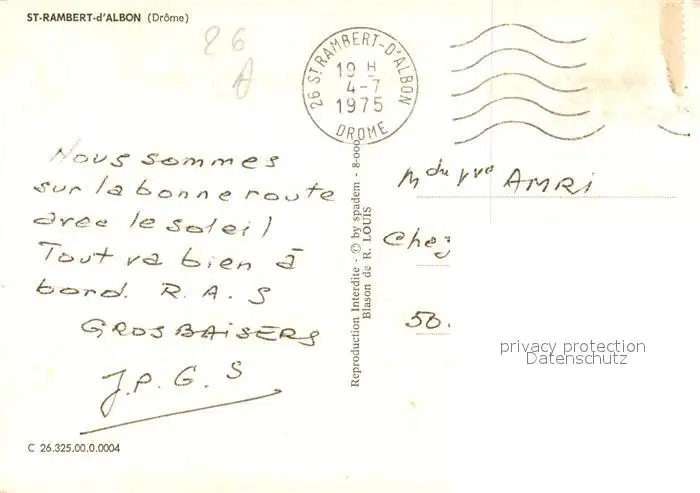 ST-RAMBERT-d'ALBON (Drôme)
26
A
26 ST RAMBERT-D'ALBON
19 H
4-7
1975
DROME
Nous sommes
sur la bonne route
avec le soleil
Tout va bien à
bord. R.A.S
GROS BAISERS
J.P. G. S
C 26.325.00.0.0004
Reproduction Interdite - © by spadem - 8-000
Blason de R. LOUIS
AMRI
Chez
50.
privacy protection
Datenschutz